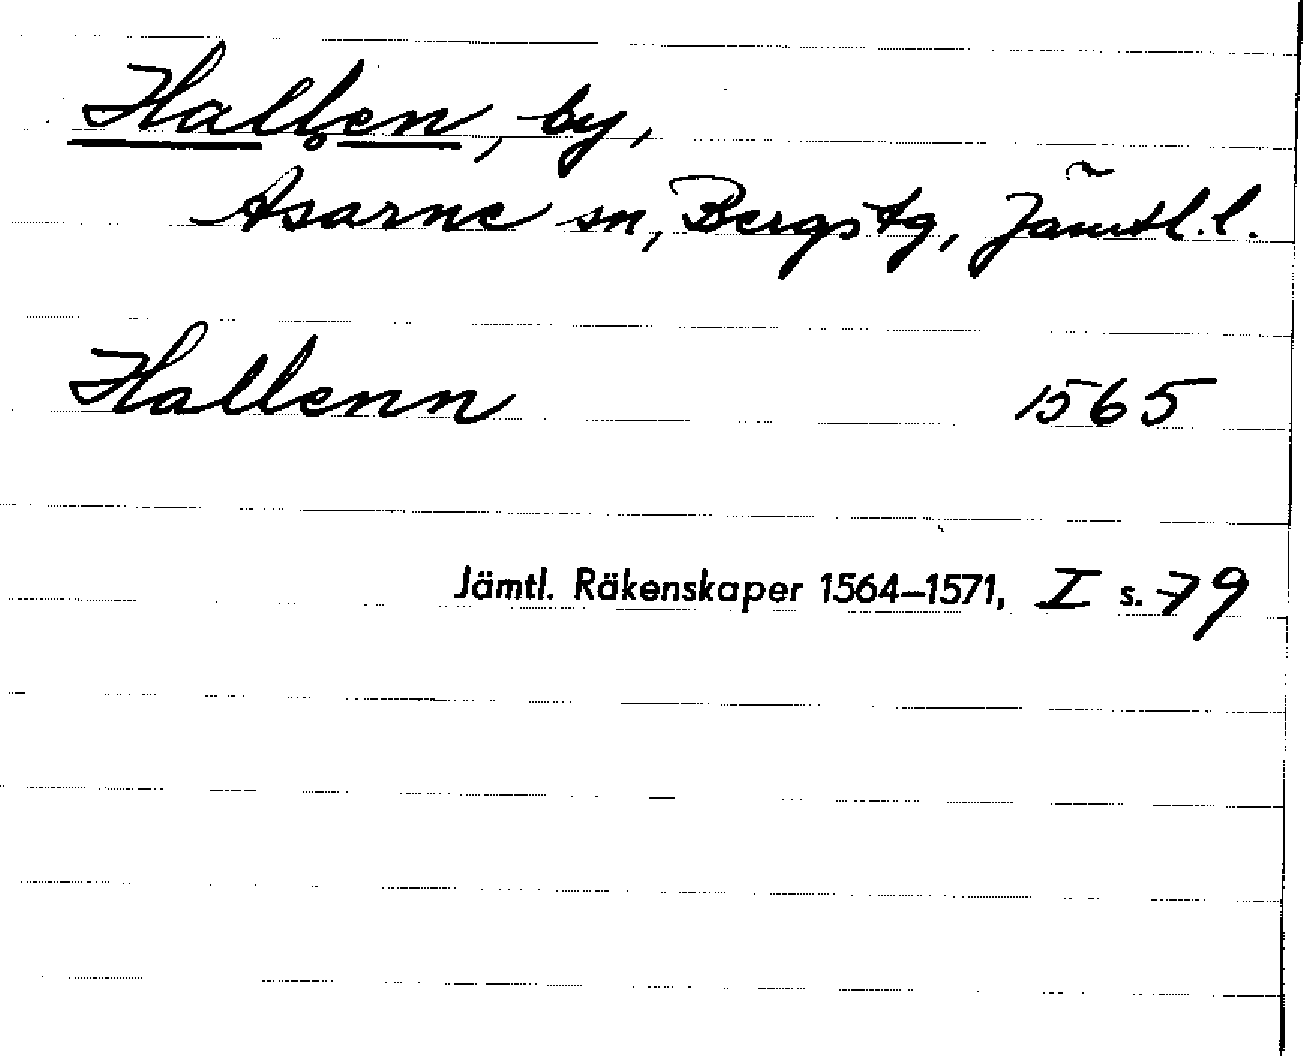 Hallen, by,
Åsarne sn, Bergs tg, Jämtl. l.
Hallenn 1565
Jämtl. Räkenskaper 1564–1571, I s. 79